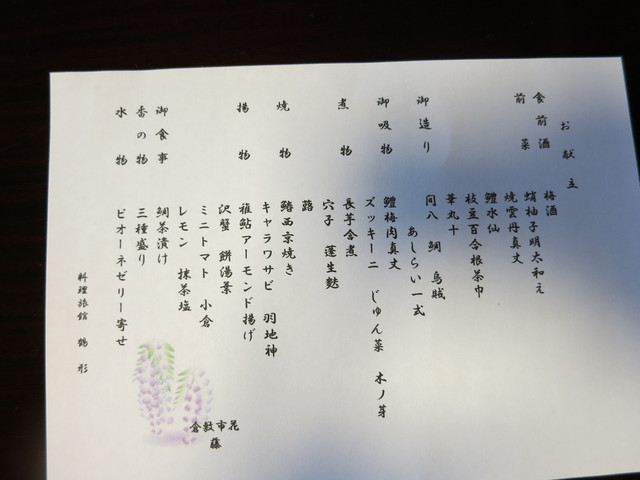 お献立
食前酒 梅酒
前菜 蛸柚子明太和え
焼雲丹真丈
鱧水仙
枝豆百合根茶巾
華丸十
御造り 間八 鯛 烏賊
あしらい一式
御吸物 鱧梅肉真丈
ズッキーニ じゅん菜 木ノ芽
煮物 長芋含煮
穴子 蓬生麩
蕗
焼物 鰆西京焼き
キャラワサビ 羽地神
揚物 稚鮎アーモンド揚げ
沢蟹 餅湯葉
ミニトマト 小倉
レモン 抹茶塩
御食事 鯛茶漬け
香の物 三種盛り
水物 ピオーネゼリー寄せ
料理旅館 鶴形
倉敷市花
藤